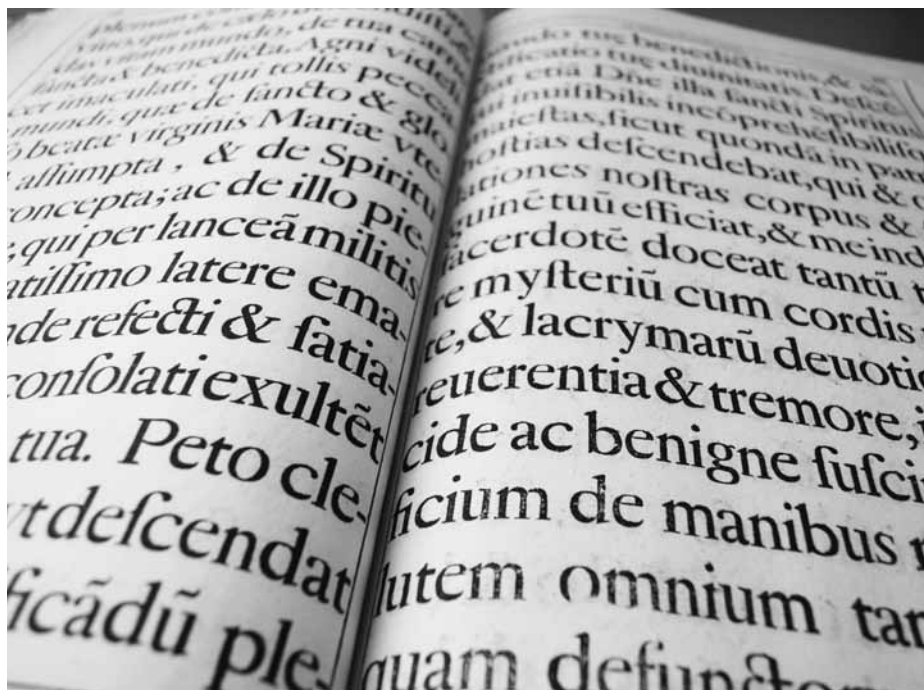 viuo, qui de cælo
das vitam mundo, de tua car
ſancta & benedicta. Agni videl
cet imaculati, qui tollis pecca
mundi, quæ de ſancto & glo
o beatæ virginis Mariæ vte
aſſumpta , & de Spiritu
oncepta; ac de illo pie
, qui per lanceã militis
atiſſimo latere ema-
nde refecti & ſatia-
conſolati exultẽt
tua. Peto cle-
vt deſcendat
ficãdũ ple-
ando tuę benedictionis &
ificatio tuę diuinitatis. Deſcẽ
at etiã Dñe illa ſancti Spiritus
ui inuiſibilis incõprehẽſibiliſq
maieſtas, ſicut quondã in patr
hoſtias deſcendebat, qui &
lationes noſtras corpus &
guinẽ tuũ efficiat, & me ind
ſacerdotẽ doceat tantũ t
re myſteriũ cum cordis
te, & lacrymarũ deuotio
reuerentia & tremore,
cide ac benigne ſuſci
ficium de manibus
lutem omnium tan
quam defuncto